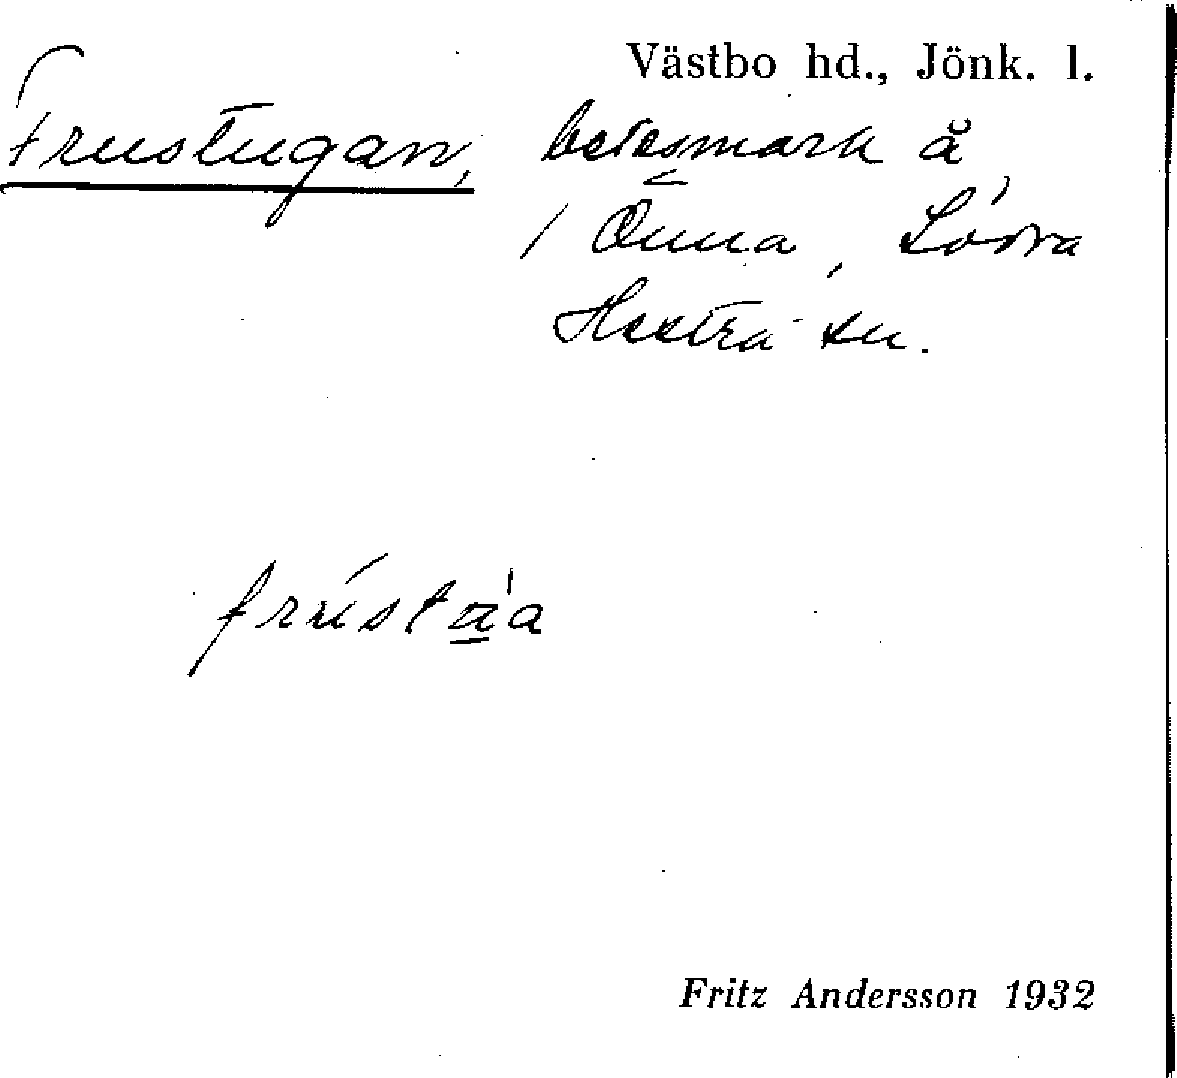 Västbo hd., Jönk. l.
Frustugan, betesmark å
/ Önna, Södra
Hestra sn.
frústu̳'a
Fritz Andersson 1932